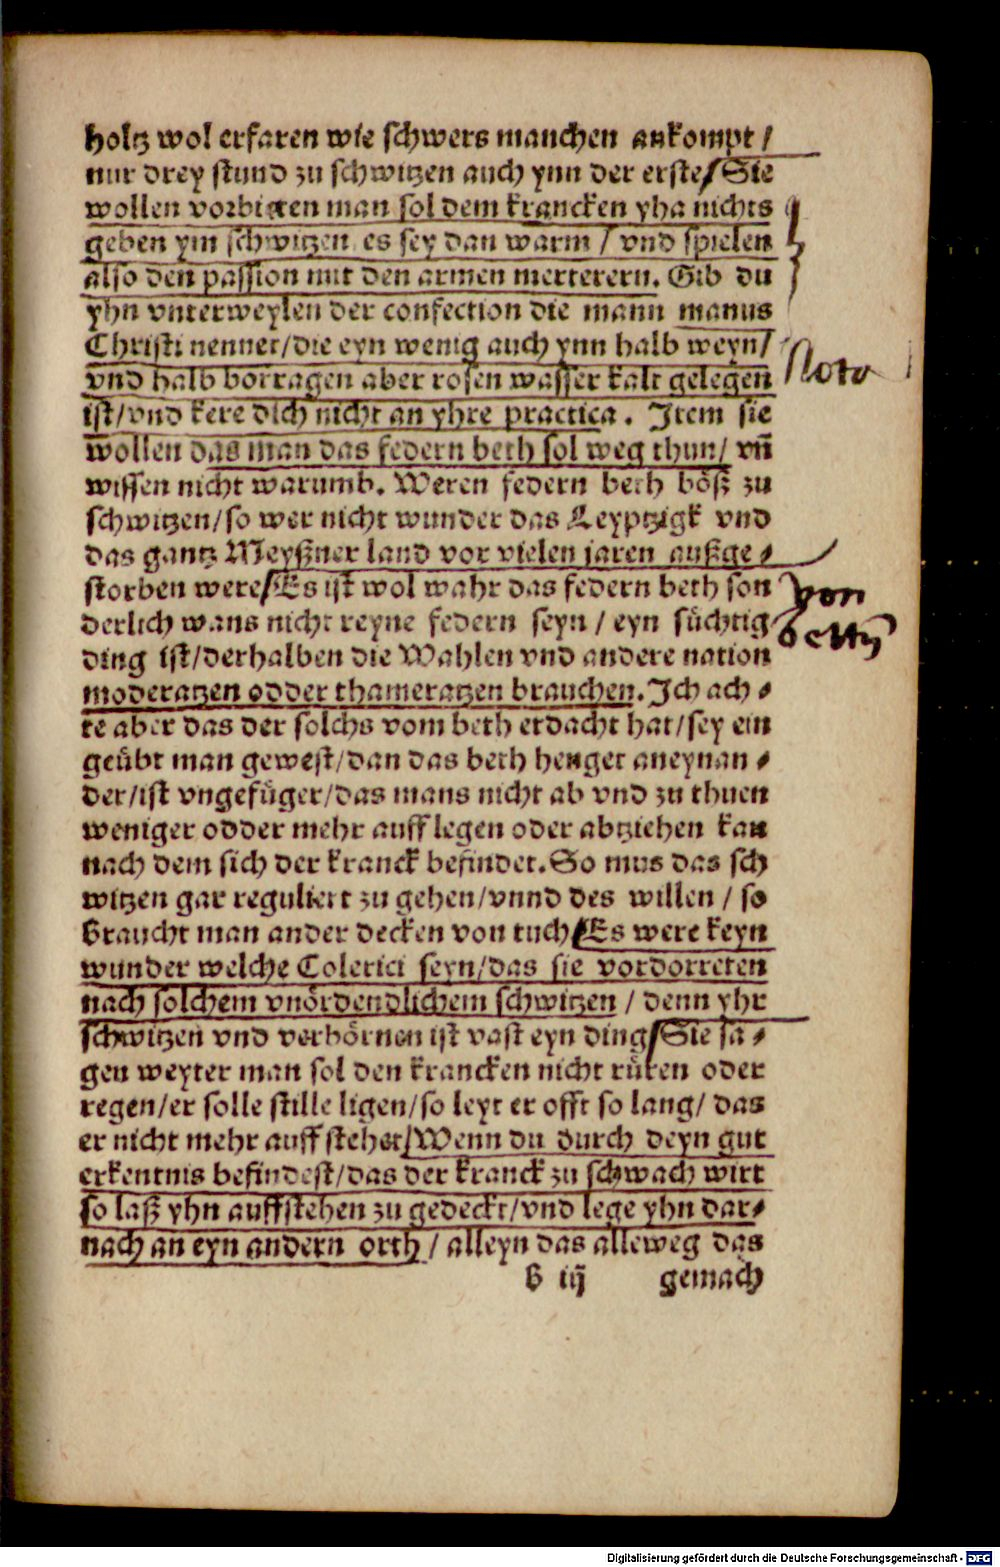 holtz wol erfaren wie schwers manchen ankompt /
nur drey stund zu schwitzen auch ynn der erste / Sie
wollen vorbieten man sol dem krancken yha nichts
geben ym schwitzen es sey dan warm / vnd spielen
also den passion mit den armen merterern. Gib du
yhn vnterweylen der confection die mann manus
Christi nennet/die eyn wenig auch ynn halb weyn/
vnd halb borragen aber rosen wasser kalt gelegen
Nota
ist/vnd kere dich nicht an yhre practica. Item sie
wollen das man das federn beth sol weg thun/ vn̄
wissen nicht warumb. Weren federn beth böß zu
schwitzen/so wer nicht wunder das Leyptzigk vnd
das gantz Meyßner land vor vielen jaren außge⸗
storben were/Es ist wol wahr das federn beth son
von
derlich wans nicht reyne federn seyn / eyn süchtig
ding ist/derhalben die Wahlen vnd andere nation
moderatzen odder thameratzen brauchen. Ich ach⸗
te aber das der solchs vom beth erdacht hat/sey ein
geübt man gewest/dan das beth henget aneynan⸗
der/ist vngefüger/das mans nicht ab vnd zu thuen
weniger odder mehr auff legen oder abtziehen kan
nach dem sich der kranck befindet. So mus das sch
witzen gar reguliert zu gehen/vnnd des willen / so
braucht man ander decken von tuch/Es were keyn
wunder welche Colerici seyn/das sie vordorreten
nach solchem vnördendlichem schwitzen / denn yhr
schwitzen vnd verhörnen ist vast eyn ding/Sie sa⸗
gen weyter man sol den krancken nicht rüren oder
regen/er solle stille ligen/so leyt er offt so lang/ das
er nicht mehr auff stehet/Wenn du durch deyn gut
erkentnis befindest/das der kranck zu schwach wirt
so laß yhn auffstehen zu gedeckt/vnd lege yhn dar⸗
nach an eyn andern orth / alleyn das alleweg das
B iij gemach
Digitalisierung gefördert durch die Deutsche Forschungsgemeinschaft - DFG